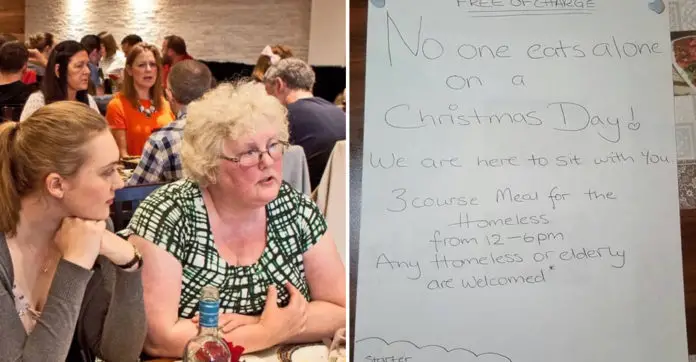 FREE OF CHARGE
No one eats alone
on a
Christmas Day!
We are here to sit with you
3 course Meal for the
Homeless
from 12-6pm
Any Homeless or elderly
are welcomed*
Starter